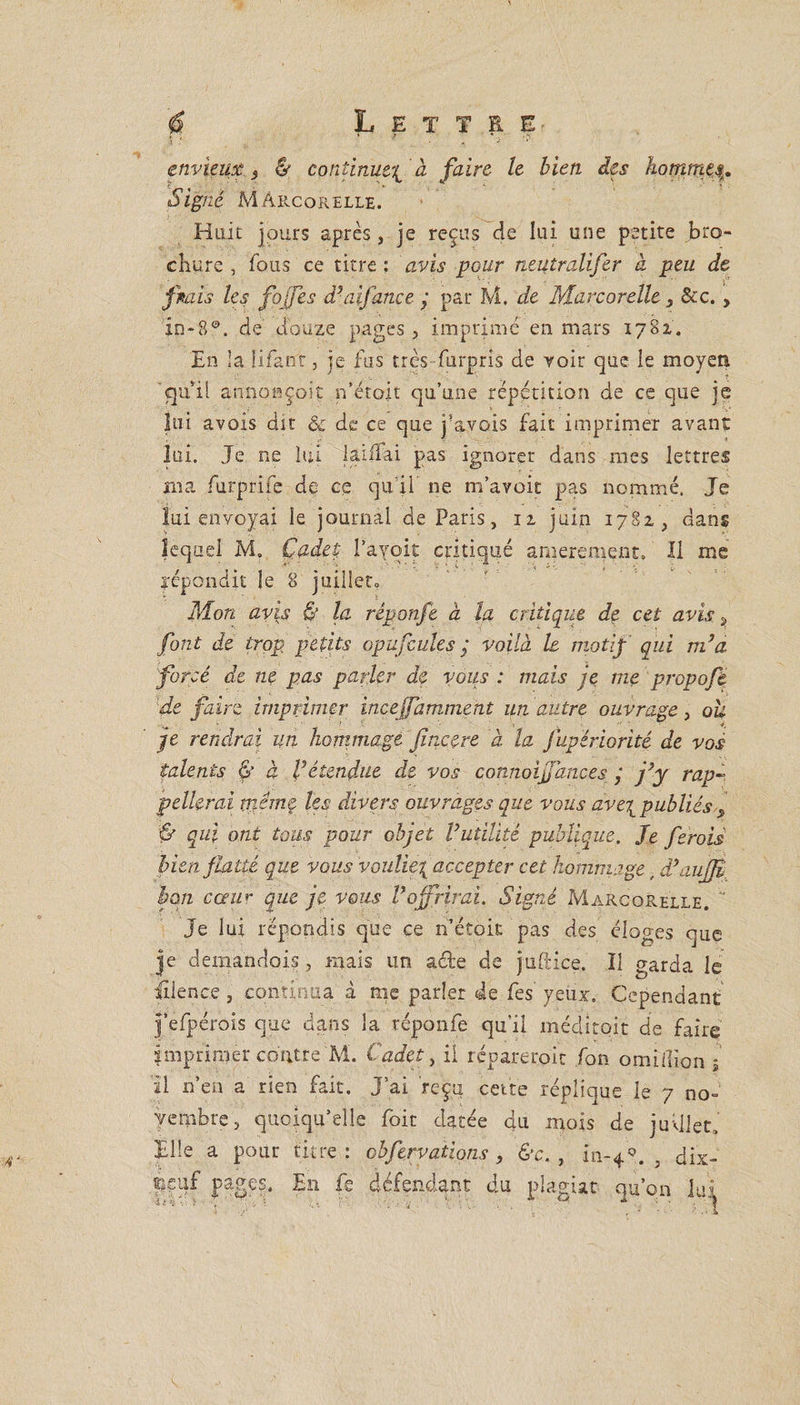 6 LETTRE
envieux, & continuez à faire le bien des hommes.
Signé MARCORELLE.
Huit jours après, je reçus de lui une petite bro-
chure, ſous ce titre : avis pour neutraliſer à peu de
frais les foſſes d'aiſance ; par M. de Marcorelle, &c.,
in-8°. de douze pages, imprimé en mars 1782.
En la liſant, je fus très-ſurpris de voir que le moyen
qu'il annonçoit n'étoit qu'une répétition de ce que je
lui avois dit & de ce que j'avois fait imprimer avant
lui. Je ne lui laiſſai pas ignorer dans mes lettres
ma ſurpriſe de ce qu'il ne m'avoit pas nommé. Je
lui envoyai le journal de Paris, 12 juin 1782, dans
lequel M. Cadet l'avoit critiqué amerement. Il me
répondit le 8 juillet.
Mon avis & la réponſe à la critique de cet avis,
ſont de trop petits opuſcules ; voilà le motif qui m'a
forcé de ne pas parler de vous : mais je me propoſe
de faire imprimer inceſſamment un autre ouvrage, où
je rendrai un hommage ſincere à la ſupériorité de vos
talents & à l'étendue de vos connoiſſances ; j'y rap-
pellerai même les divers ouvrages que vous avez publiés,
& qui ont tous pour objet l'utilité publique. Je ſerois
bien flatté que vous vouliez accepter cet hommage, d'auſſi
bon cœur que je vous l'offrirai. Signé MARCORELLE.
Je lui répondis que ce n'étoit pas des éloges que
je demandois, mais un acte de juſtice. Il garda le
ſilence, continua à me parler de ſes yeux. Cependant
j'eſpérois que dans la réponſe qu'il méditoit de faire
imprimer contre M. Cadet, il répareroit ſon omiſſion ;
il n'en a rien fait. J'ai reçu cette réplique le 7 no-
vembre, quoiqu'elle ſoit datée du mois de juillet.
Elle a pour titre : obſervations, &c., in-4°., dix-
neuf pages. En ſe défendant du plagiat qu'on lui